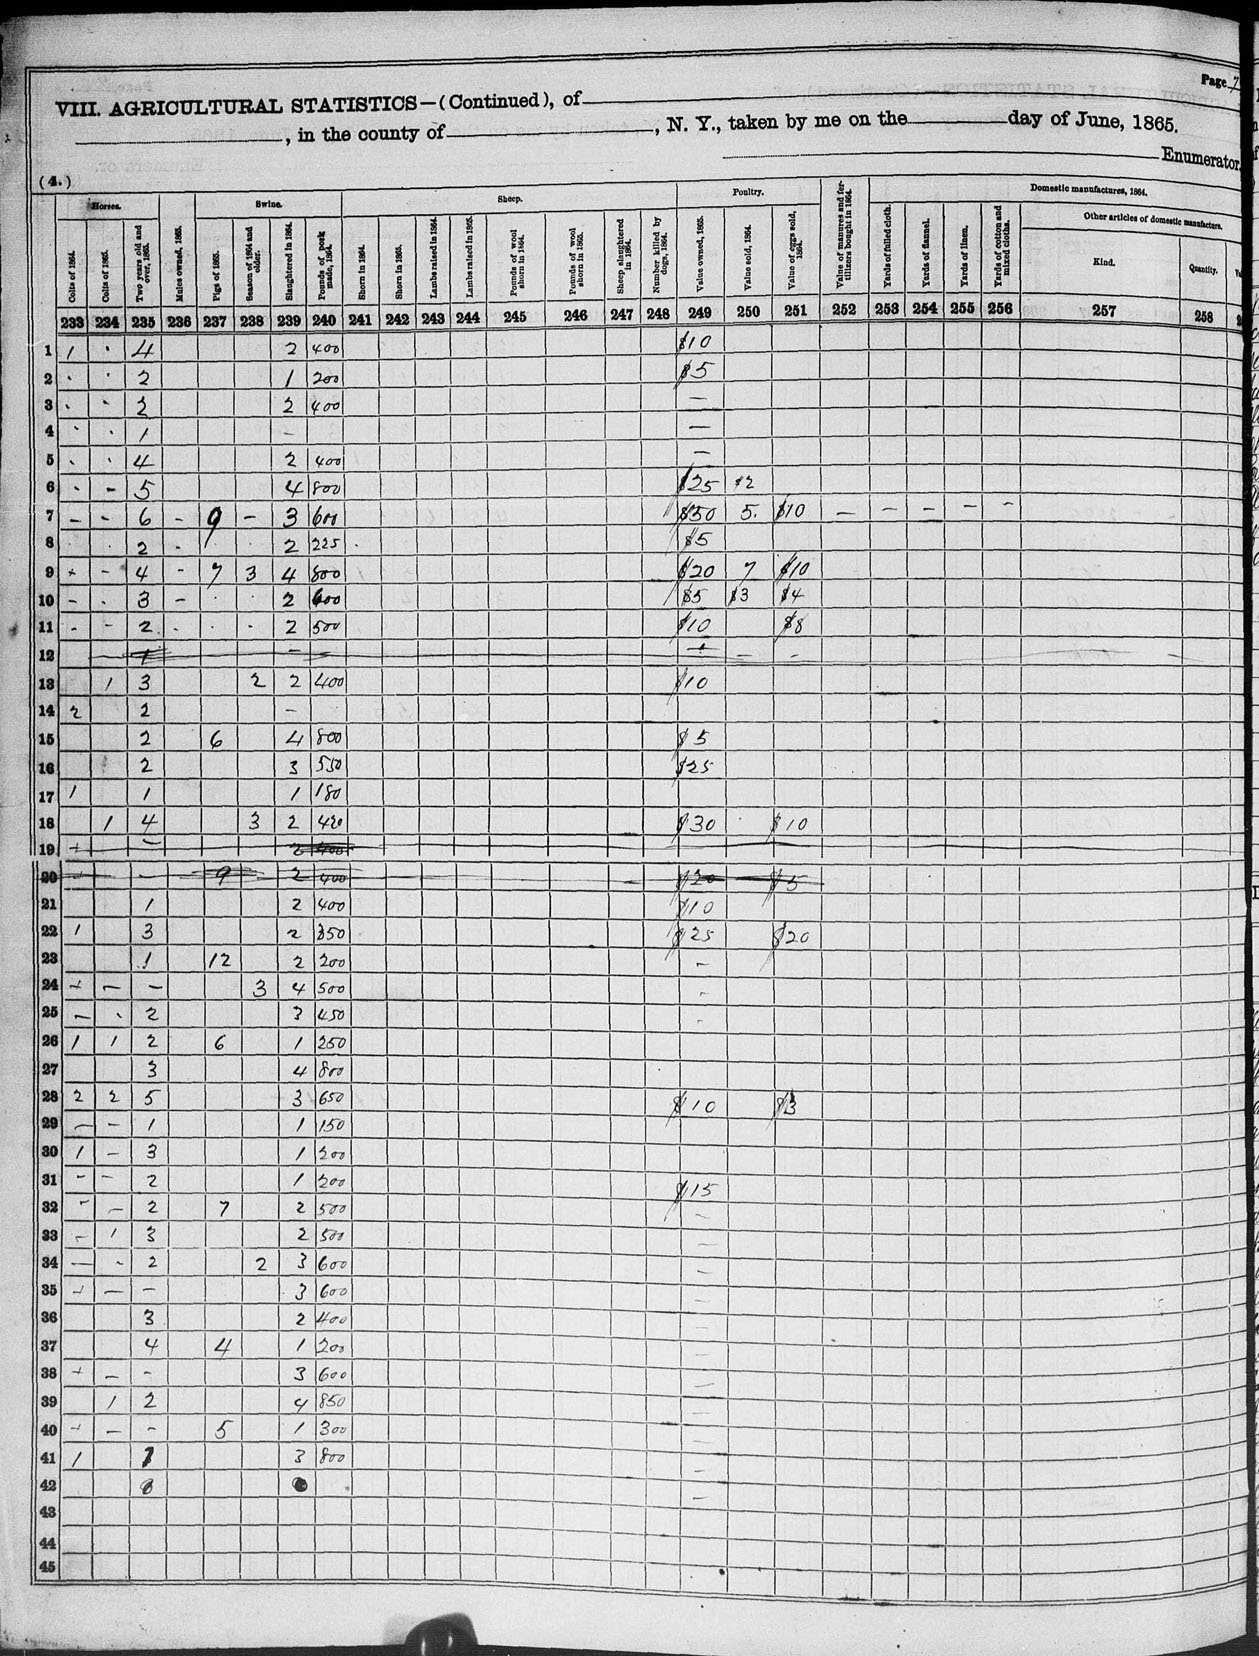 Page 7
VIII. AGRICULTURAL STATISTICS—(Continued), of
, in the county of , N. Y., taken by me on the day of June, 1865.
Enumerator.
(4.)
Horses. Swine. Sheep. Poultry. Value of manures and fertilizers bought in 1864. Domestic manufactures, 1864.
Colts of 1864. Colts of 1865. Two years old and over, 1865. Mules owned, 1865. Pigs of 1865. Season of 1864 and older. Slaughtered in 1864. Pounds of pork made, 1864. Shorn in 1864. Shorn in 1865. Lambs raised in 1864. Lambs raised in 1865. Pounds of wool shorn in 1864. Pounds of wool shorn in 1865. Sheep slaughtered in 1864. Number killed by dogs, 1864. Value owned, 1865. Value sold, 1864. Value of eggs sold, 1864. Yards of fulled cloth. Yards of flannel. Yards of linen. Yards of cotton and mixed cloths. Other articles of domestic manufacture.
Kind. Quantity.
233 234 235 236 237 238 239 240 241 242 243 244 245 246 247 248 249 250 251 252 253 254 255 256 257 258
1 1 · 4 2 400 $10
2 · · 2 1 200 $5
3 · · 2 2 400 —
4 · · 1 – —
5 · · 4 2 400 —
6 · – 5 4 800 $25 $2
7 – – 6 – 9 – 3 600 $50 5. $10 — — — — —
8 · · 2 · · · 2 225 · $5
9 – – 4 – 7 3 4 800 $20 7 $10
10 – · 3 – · · 2 600 $5 $3 $4
11 – – 2 · · · 2 500 $10 $8
12 1 –
13 1 3 2 2 400 $10
14 2 2 –
15 2 6 4 800 $5
16 2 3 550 $25
17 1 1 1 180
18 1 4 3 2 420 $30 $10
19 – 2 400
20 – 9 2 400 $20 $5
21 1 2 400 $10
22 1 3 2 350 $25 $20
23 1 12 2 200 –
24 – — – 3 4 500 –
25 — · 2 3 450 –
26 1 1 2 6 1 250
27 3 4 800
28 2 2 5 3 650 $10 $3
29 — – 1 1 150
30 1 – 3 1 200
31 – – 2 1 200 $15
32 – – 2 7 2 500 —
33 – 1 3 2 500 —
34 — · 2 2 3 600 —
35 – — – 3 600 —
36 3 2 400 —
37 4 4 1 200 —
38 – — – 3 600 —
39 1 2 4 850 —
40 – — – 5 1 300 —
41 1 1 3 800 —
42 —
43
44
45